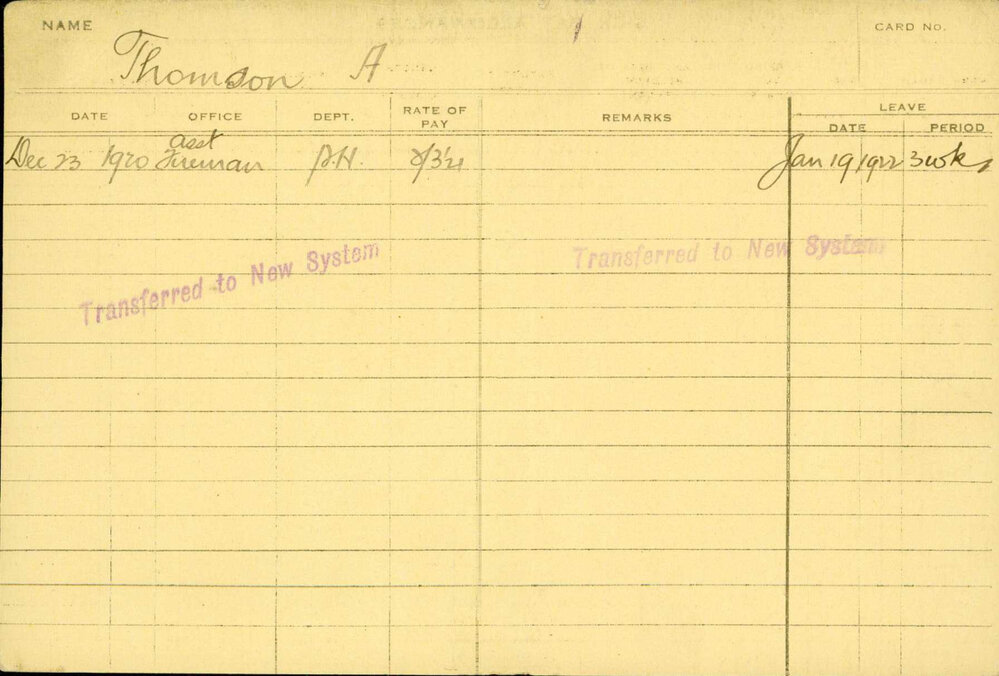 NAME
CARD No.
Thomson A
DATE OFFICE DEPT. RATE OF PAY REMARKS LEAVE
DATE PERIOD
asst
Dec 23 1920 Fireman P.H. Jan 19 1922 3 wks
Transferred to New System
Transferred to New System